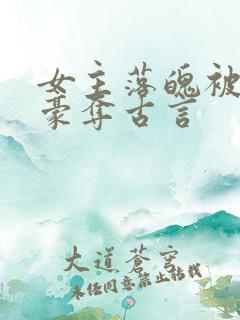 女主落魄被
豪夺古言
大道苍穹
未经同意禁止转载